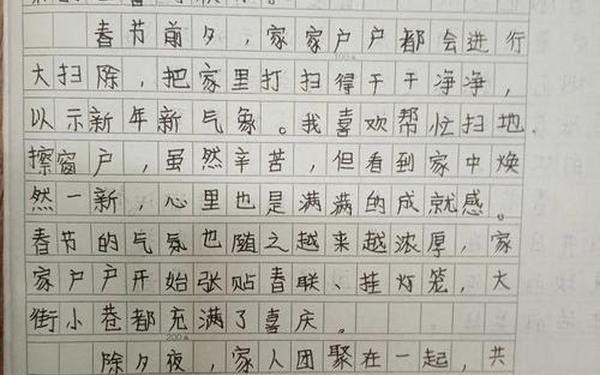 春节前夕，家家户户都会进行
100
大扫除，把家里打扫得干干净净，
以示新年新气象。我喜欢帮忙扫地、
擦窗户，虽然辛苦，但看到家中焕
然一新，心里也是满满的成就感。
春节的气氛也随之越来越浓厚，家
家户户开始张贴春联、挂灯笼，大
街小巷都充满了喜庆。
200
除夕夜，家人团聚在一起，共